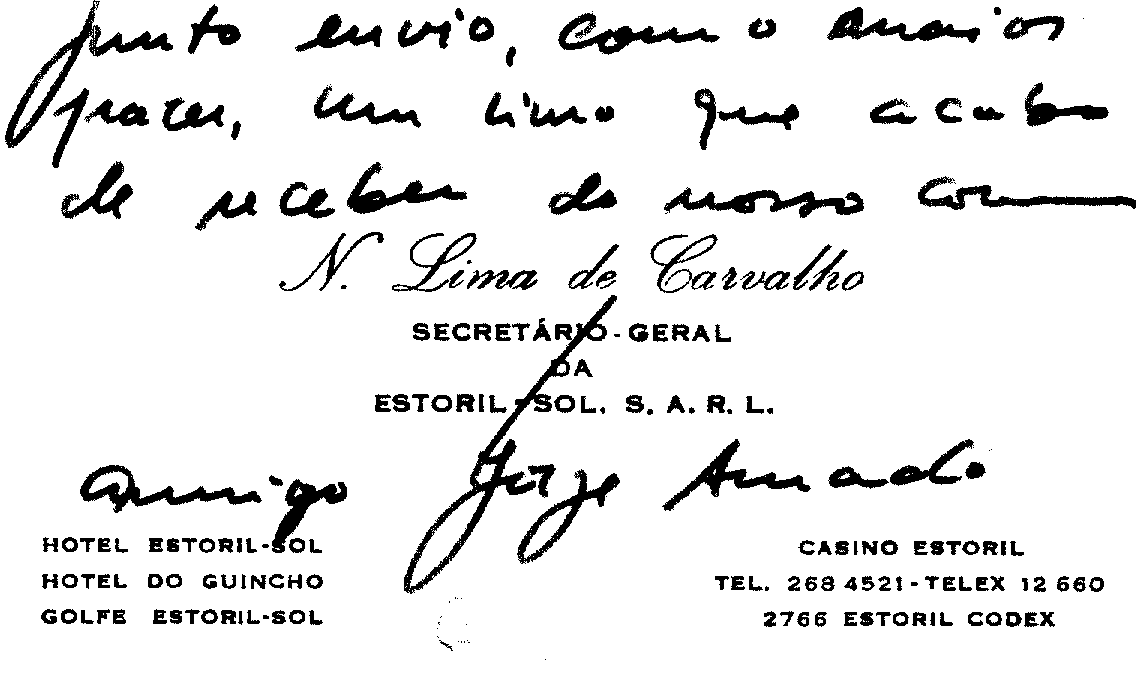 Junto envio, com o maior
prazer, um livro que acabo
de receber do nosso com
N. Lima de Carvalho
SECRETÁRIO-GERAL
DA
ESTORIL-SOL, S. A. R. L.
amigo Jorge Amado
HOTEL ESTORIL-SOL
HOTEL DO GUINCHO
GOLFE ESTORIL-SOL
CASINO ESTORIL
TEL. 268 4521 - TELEX 12 660
2766 ESTORIL CODEX